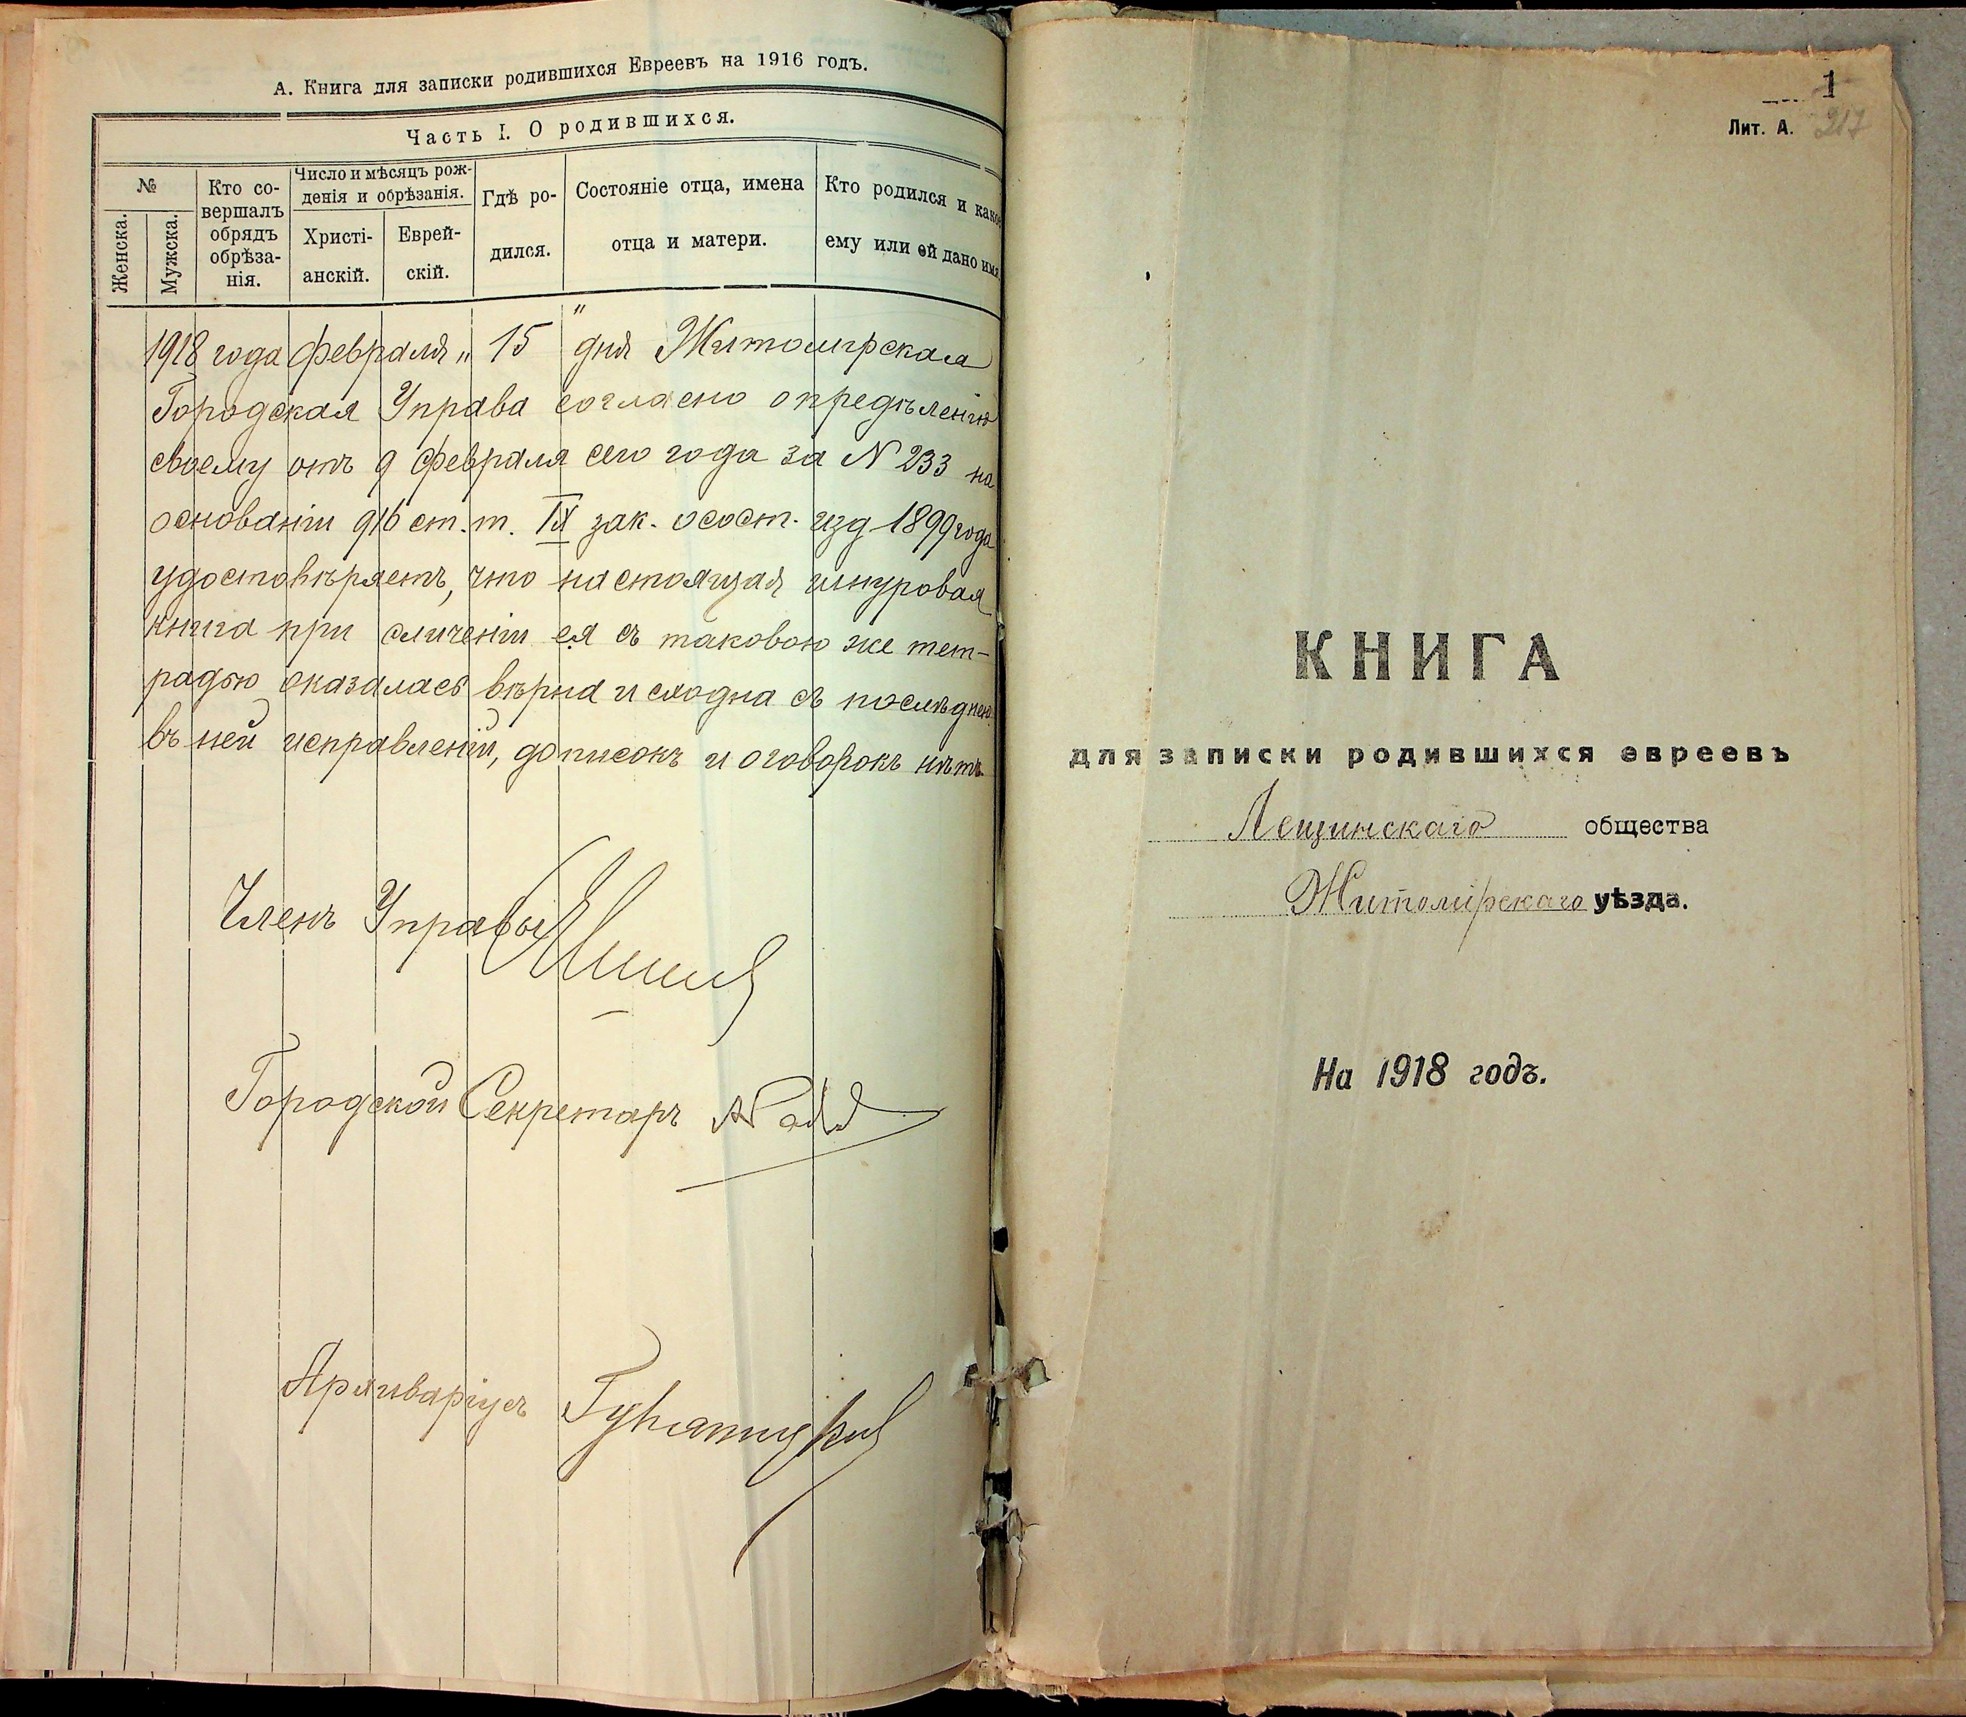 А. Книга для записки родившихся Евреевъ на 1916 годъ.
Часть I. О родившихся.
№
Женска.
Мужска.
Кто со-
вершалъ
обрядъ
обрѣза-
нія.
Число и мѣсяцъ рож-
денія и обрѣзанія.
Христі-
анскій.
Еврей-
скій.
Гдѣ ро-
дился.
Состояніе отца, имена
отца и матери.
Кто родился и какое
ему или ей дано имя
1918 года февраля „15“ дня Житомирская
Городская Управа согласно опредѣленію
своему отъ 9 февраля сего года за N 233 на
основаніи 916 ст. т. IX зак. о сост. изд 1899 года
удостовѣряетъ, что настоящая шнуровая
книга при сличеніи ея съ таковою же тет-
радью оказалась вѣрна и сходна съ послѣднею
въ ней исправленій, дописокъ и оговорокъ нѣтъ.
Членъ Управы
Городской Секретарь
Архиваріусъ
1
Лит. А. 217
КНИГА
для записки родившихся евреевъ
Лещинскаго общества
Житомірскаго уѣзда.
На 1918 годъ.